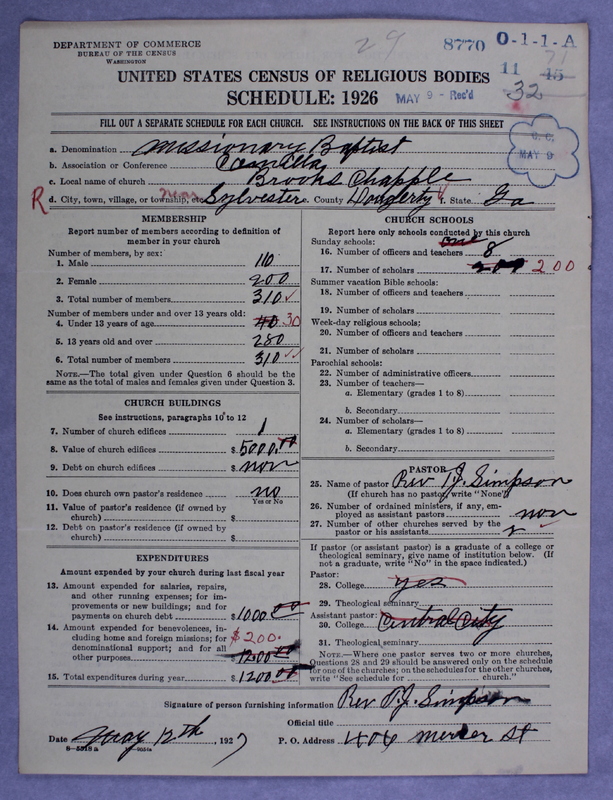 DEPARTMENT OF COMMERCE
BUREAU OF THE CENSUS
WASHINGTON
29
8770
O-1-1-A
71
11 45
32
UNITED STATES CENSUS OF RELIGIOUS BODIES
SCHEDULE: 1926
MAY 9 - Rec'd
FILL OUT A SEPARATE SCHEDULE FOR EACH CHURCH. SEE INSTRUCTIONS ON THE BACK OF THIS SHEET
MAY 9
a. Denomination Missionary Baptist
b. Association or Conference Camilla
c. Local name of church Brooks Chapple
R d. City, town, village, or township, etc. near Sylvester e. County Dougherty f. State Ga
MEMBERSHIP
Report number of members according to definition of
member in your church
Number of members, by sex:
1. Male 110
2. Female 200
3. Total number of members 310
Number of members under and over 13 years old:
4. Under 13 years of age 40 30
5. 13 years old and over 280
6. Total number of members 310
NOTE.—The total given under Question 6 should be
same as the total of males and females given under Question 3.
CHURCH BUILDINGS
See instructions, paragraphs 10 to 12
7. Number of church edifices 1
8. Value of church edifices $ 5000.00
9. Debt on church edifices $ non
10. Does church own pastor's residence no
Yes or No
11. Value of pastor's residence (if owned by
church) $
12. Debt on pastor's residence (if owned by
church) $
EXPENDITURES
Amount expended by your church during last fiscal year
13. Amount expended for salaries, repairs,
and other running expenses; for im-
provements or new buildings; and for
payments on church debt $ 1000 00
14. Amount expended for benevolences, in-
cluding home and foreign missions; for $200.
denominational support; and for all
other purposes 1200 00
15. Total expenditures during year $ 1200 00
CHURCH SCHOOLS
Report here only schools conducted by this church
Sunday schools:
16. Number of officers and teachers one 8
17. Number of scholars 200
Summer vacation Bible schools:
18. Number of officers and teachers
19. Number of scholars
Week-day religious schools:
20. Number of officers and teachers
21. Number of scholars
Parochial schools:
22. Number of administrative officers
23. Number of teachers—
a. Elementary (grades 1 to 8)
b. Secondary
24. Number of scholars—
a. Elementary (grades 1 to 8)
b. Secondary
PASTOR
25. Name of pastor Rev P.J. Simpson
(If church has no pastor, write "None")
26. Number of ordained ministers, if any, em-
ployed as assistant pastors non
27. Number of other churches served by the
pastor or his assistants 2
If pastor (or assistant pastor) is a graduate of a college or
theological seminary, give name of institution below. (If
not a graduate, write "No" in the space indicated.)
Pastor:
28. College yes
29. Theological seminary
Assistant pastor:
30. College Central City
31. Theological seminary
NOTE.—Where one pastor serves two or more churches,
Questions 28 and 29 should be answered only on the schedule
for one of the churches; on the schedules for the other churches,
write "See schedule for church."
Signature of person furnishing information Rev P.J. Simpson
Official title
Date May 12th, 1927 P. O. Address 406 mercer St
8-5318a